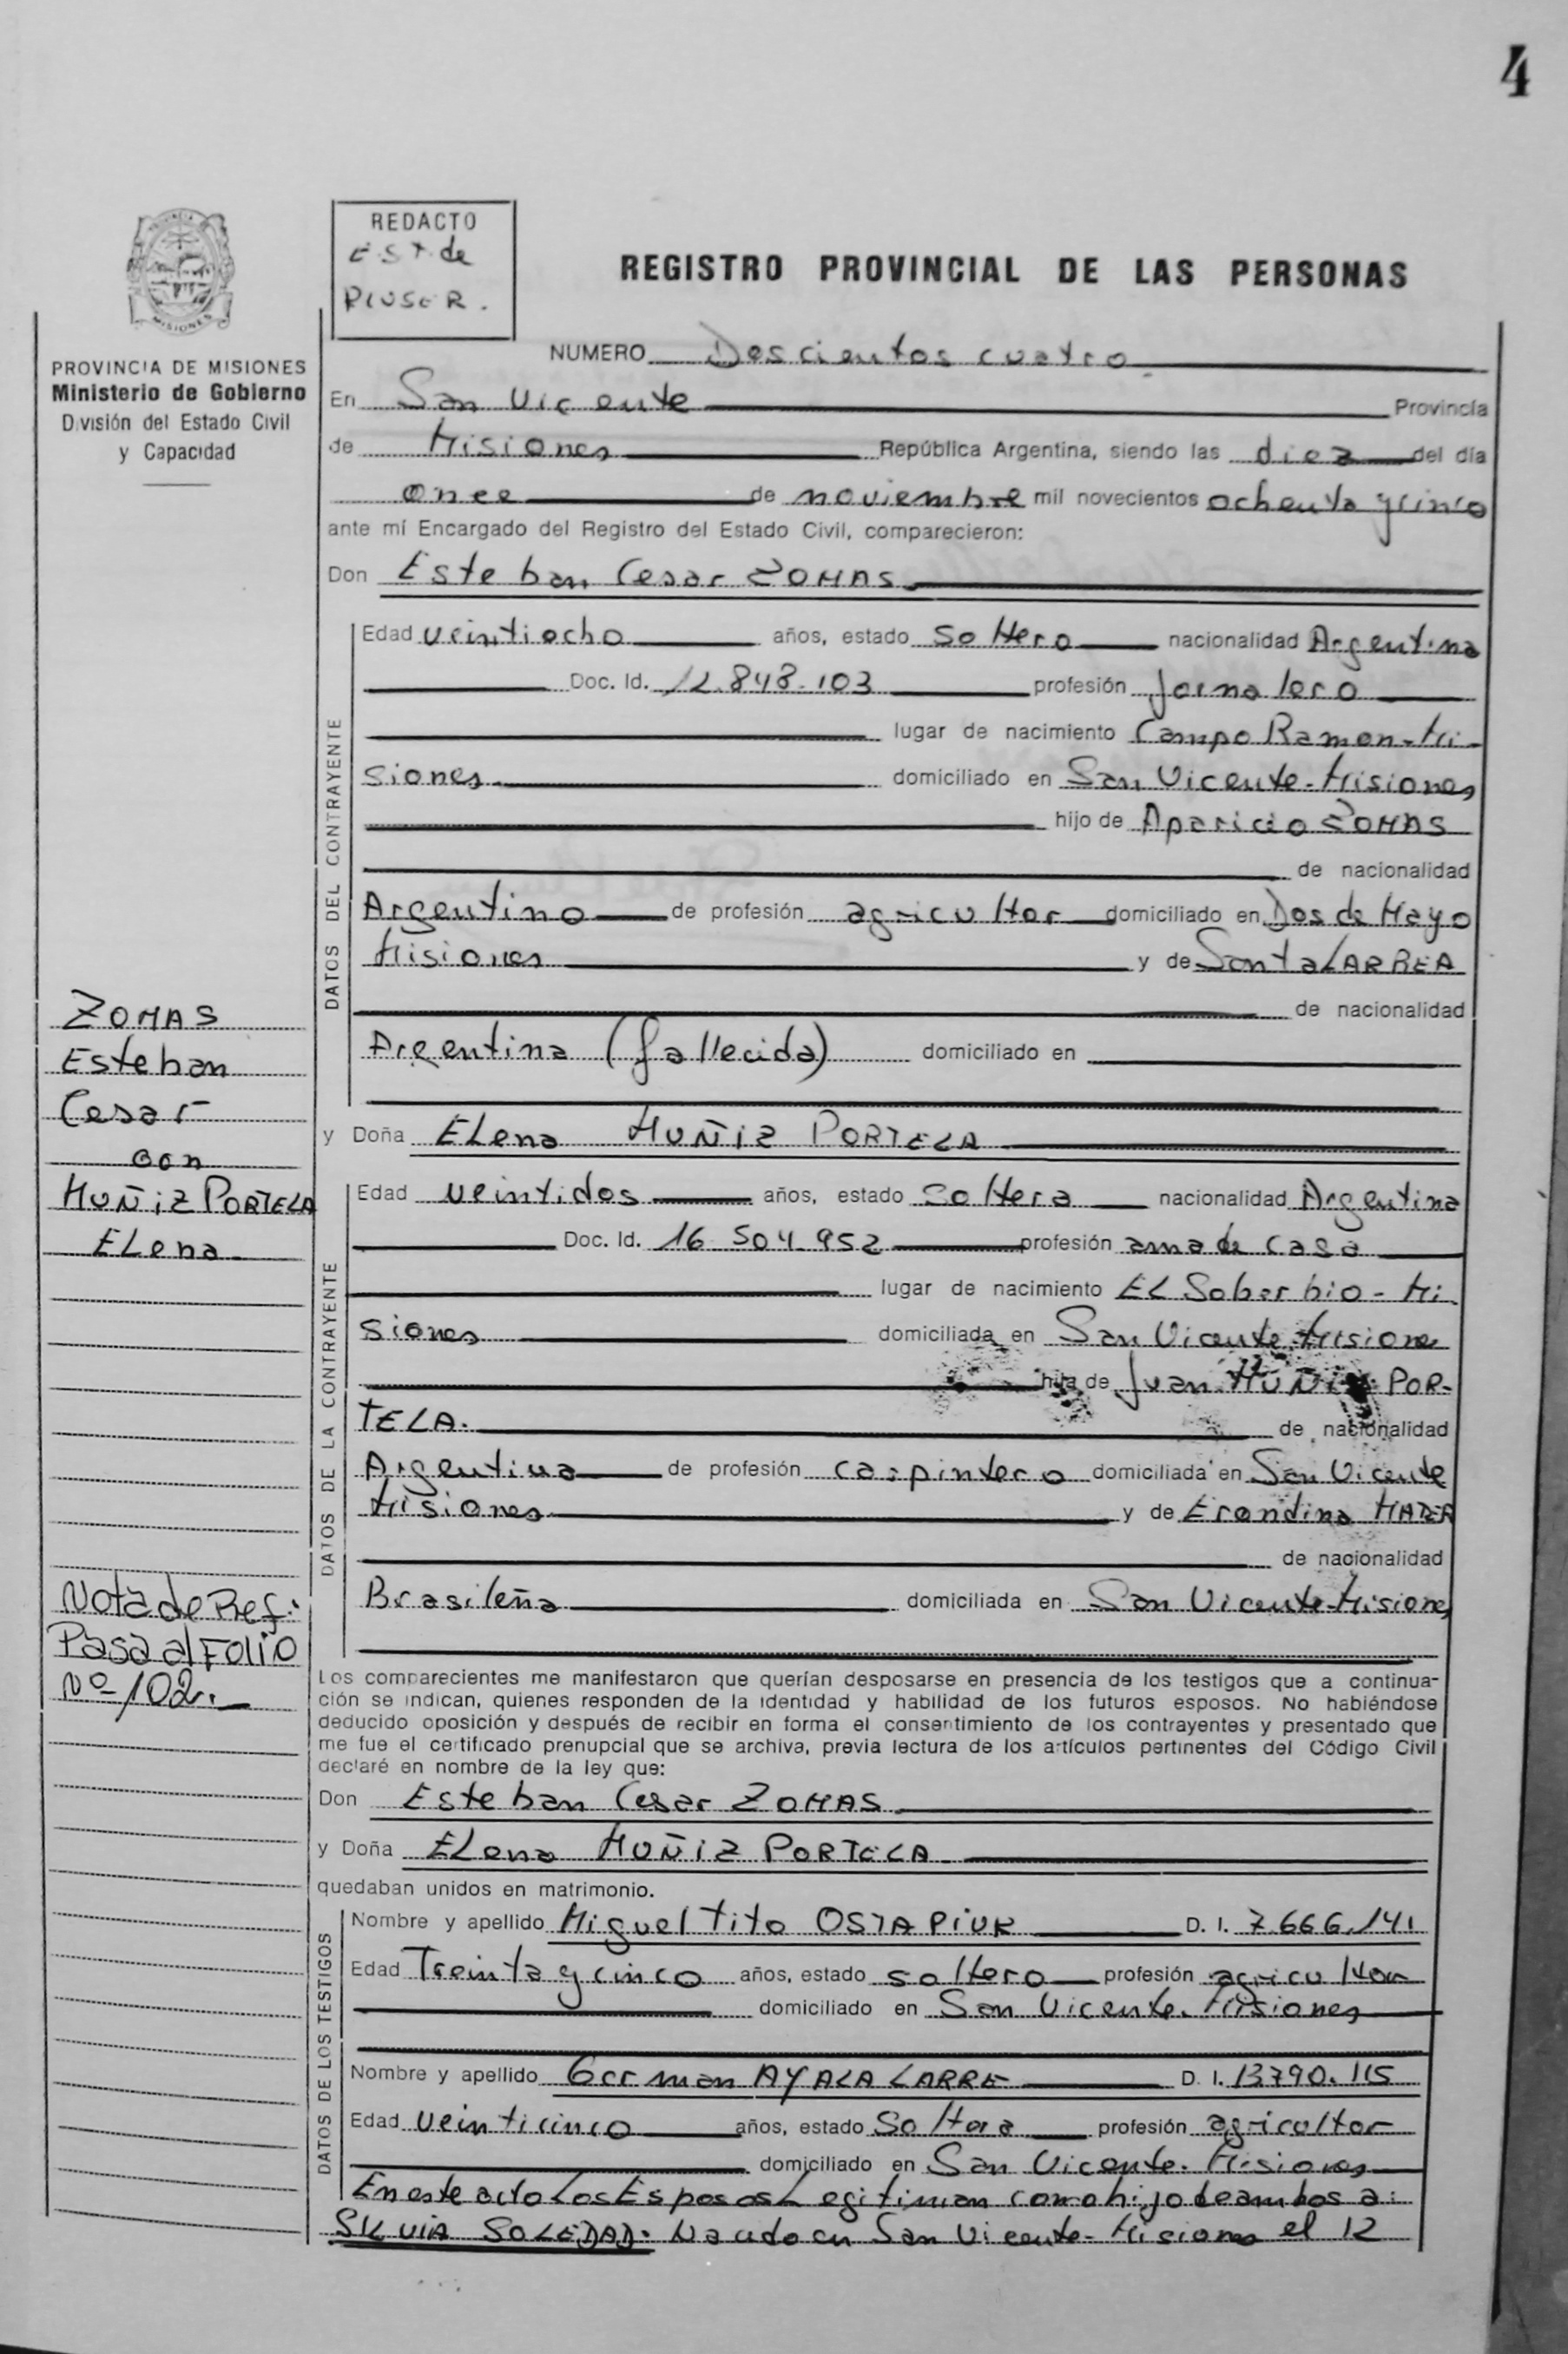 4
REDACTO
EST. de
PIUSER.
REGISTRO PROVINCIAL DE LAS PERSONAS
PROVINCIA DE MISIONES
Ministerio de Gobierno
División del Estado Civil
y Capacidad
NUMERO Doscientos cuatro
En San Vicente Provincia
de Misiones República Argentina, siendo las diez del día
once de noviembre mil novecientos ochenta y cinco
ante mí Encargado del Registro del Estado Civil, comparecieron:
Don Esteban Cesar ZOMAS
DATOS DEL CONTRAYENTE
Edad veintiocho años, estado soltero nacionalidad Argentina
Doc. Id. 12.848.103 profesión Jornalero
lugar de nacimiento Campo Ramon-Mi-
siones domiciliado en San Vicente-Misiones
hijo de Aparicio ZOMAS
de nacionalidad
Argentino de profesión agricultor domiciliado en Dos de Mayo
Misiones y de Santa LARREA
de nacionalidad
Argentina (fallecida) domiciliado en
y Doña ELena MUÑIZ PORTELA
ZOMAS
Esteban
Cesar
con
MUÑIZ PORTELA
ELena
DATOS DE LA CONTRAYENTE
Edad veintidos años, estado soltera nacionalidad Argentina
Doc. Id. 16 504.952 profesión ama de casa
lugar de nacimiento EL Soberbio - Mi-
siones domiciliada en San Vicente-Misiones
hija de Juan MUÑIZ POR-
TELA. de nacionalidad
Argentina de profesión carpintero domiciliada en San Vicente
Misiones y de Erondina
de nacionalidad
Brasileña domiciliada en San Vicente-Misiones
Nota de Ref:
Pasa al FOLIO
Nº 102.
Los comparecientes me manifestaron que querían desposarse en presencia de los testigos que a continua-
ción se indican, quienes responden de la identidad y habilidad de los futuros esposos. No habiéndose
deducido oposición y después de recibir en forma el consentimiento de los contrayentes y presentado que
me fue el certificado prenupcial que se archiva, previa lectura de los artículos pertinentes del Código Civil
declaré en nombre de la ley que:
Don Esteban Cesar ZOMAS
y Doña ELena MUÑIZ PORTELA
quedaban unidos en matrimonio.
DATOS DE LOS TESTIGOS
Nombre y apellido Miguel Tito OSTAPIUK D. I. 7.666.141
Edad Treinta y cinco años, estado soltero profesión agricultor
domiciliado en San Vicente. Misiones
Nombre y apellido German AYALA LARRE D. I. 13790.115
Edad veinticinco años, estado Soltero profesión agricultor
domiciliado en San Vicente. Misiones
En este acto Los Esposos Legitiman como hijo de ambos a:
SILVIA SOLEDAD. Nacido en San Vicente-Misiones el 12